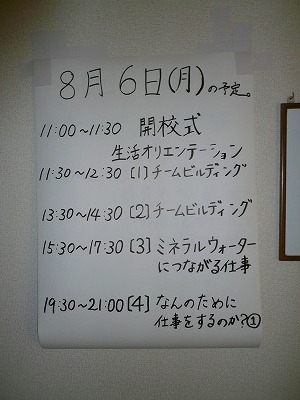 8月6日(月)の予定。
11:00〜11:30 開校式
生活オリエンテーション
11:30〜12:30 [1]チームビルディング
13:30〜14:30 [2]チームビルディング
15:30〜17:30 [3]ミネラルウォーター
につながる仕事
19:30〜21:00 [4]なんのために
仕事をするのか?①